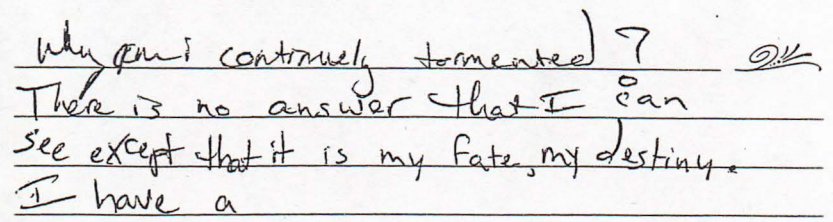 Why am i continuely tormented?
There is no answer that I can
see except that it is my fate, my destiny.
I have a